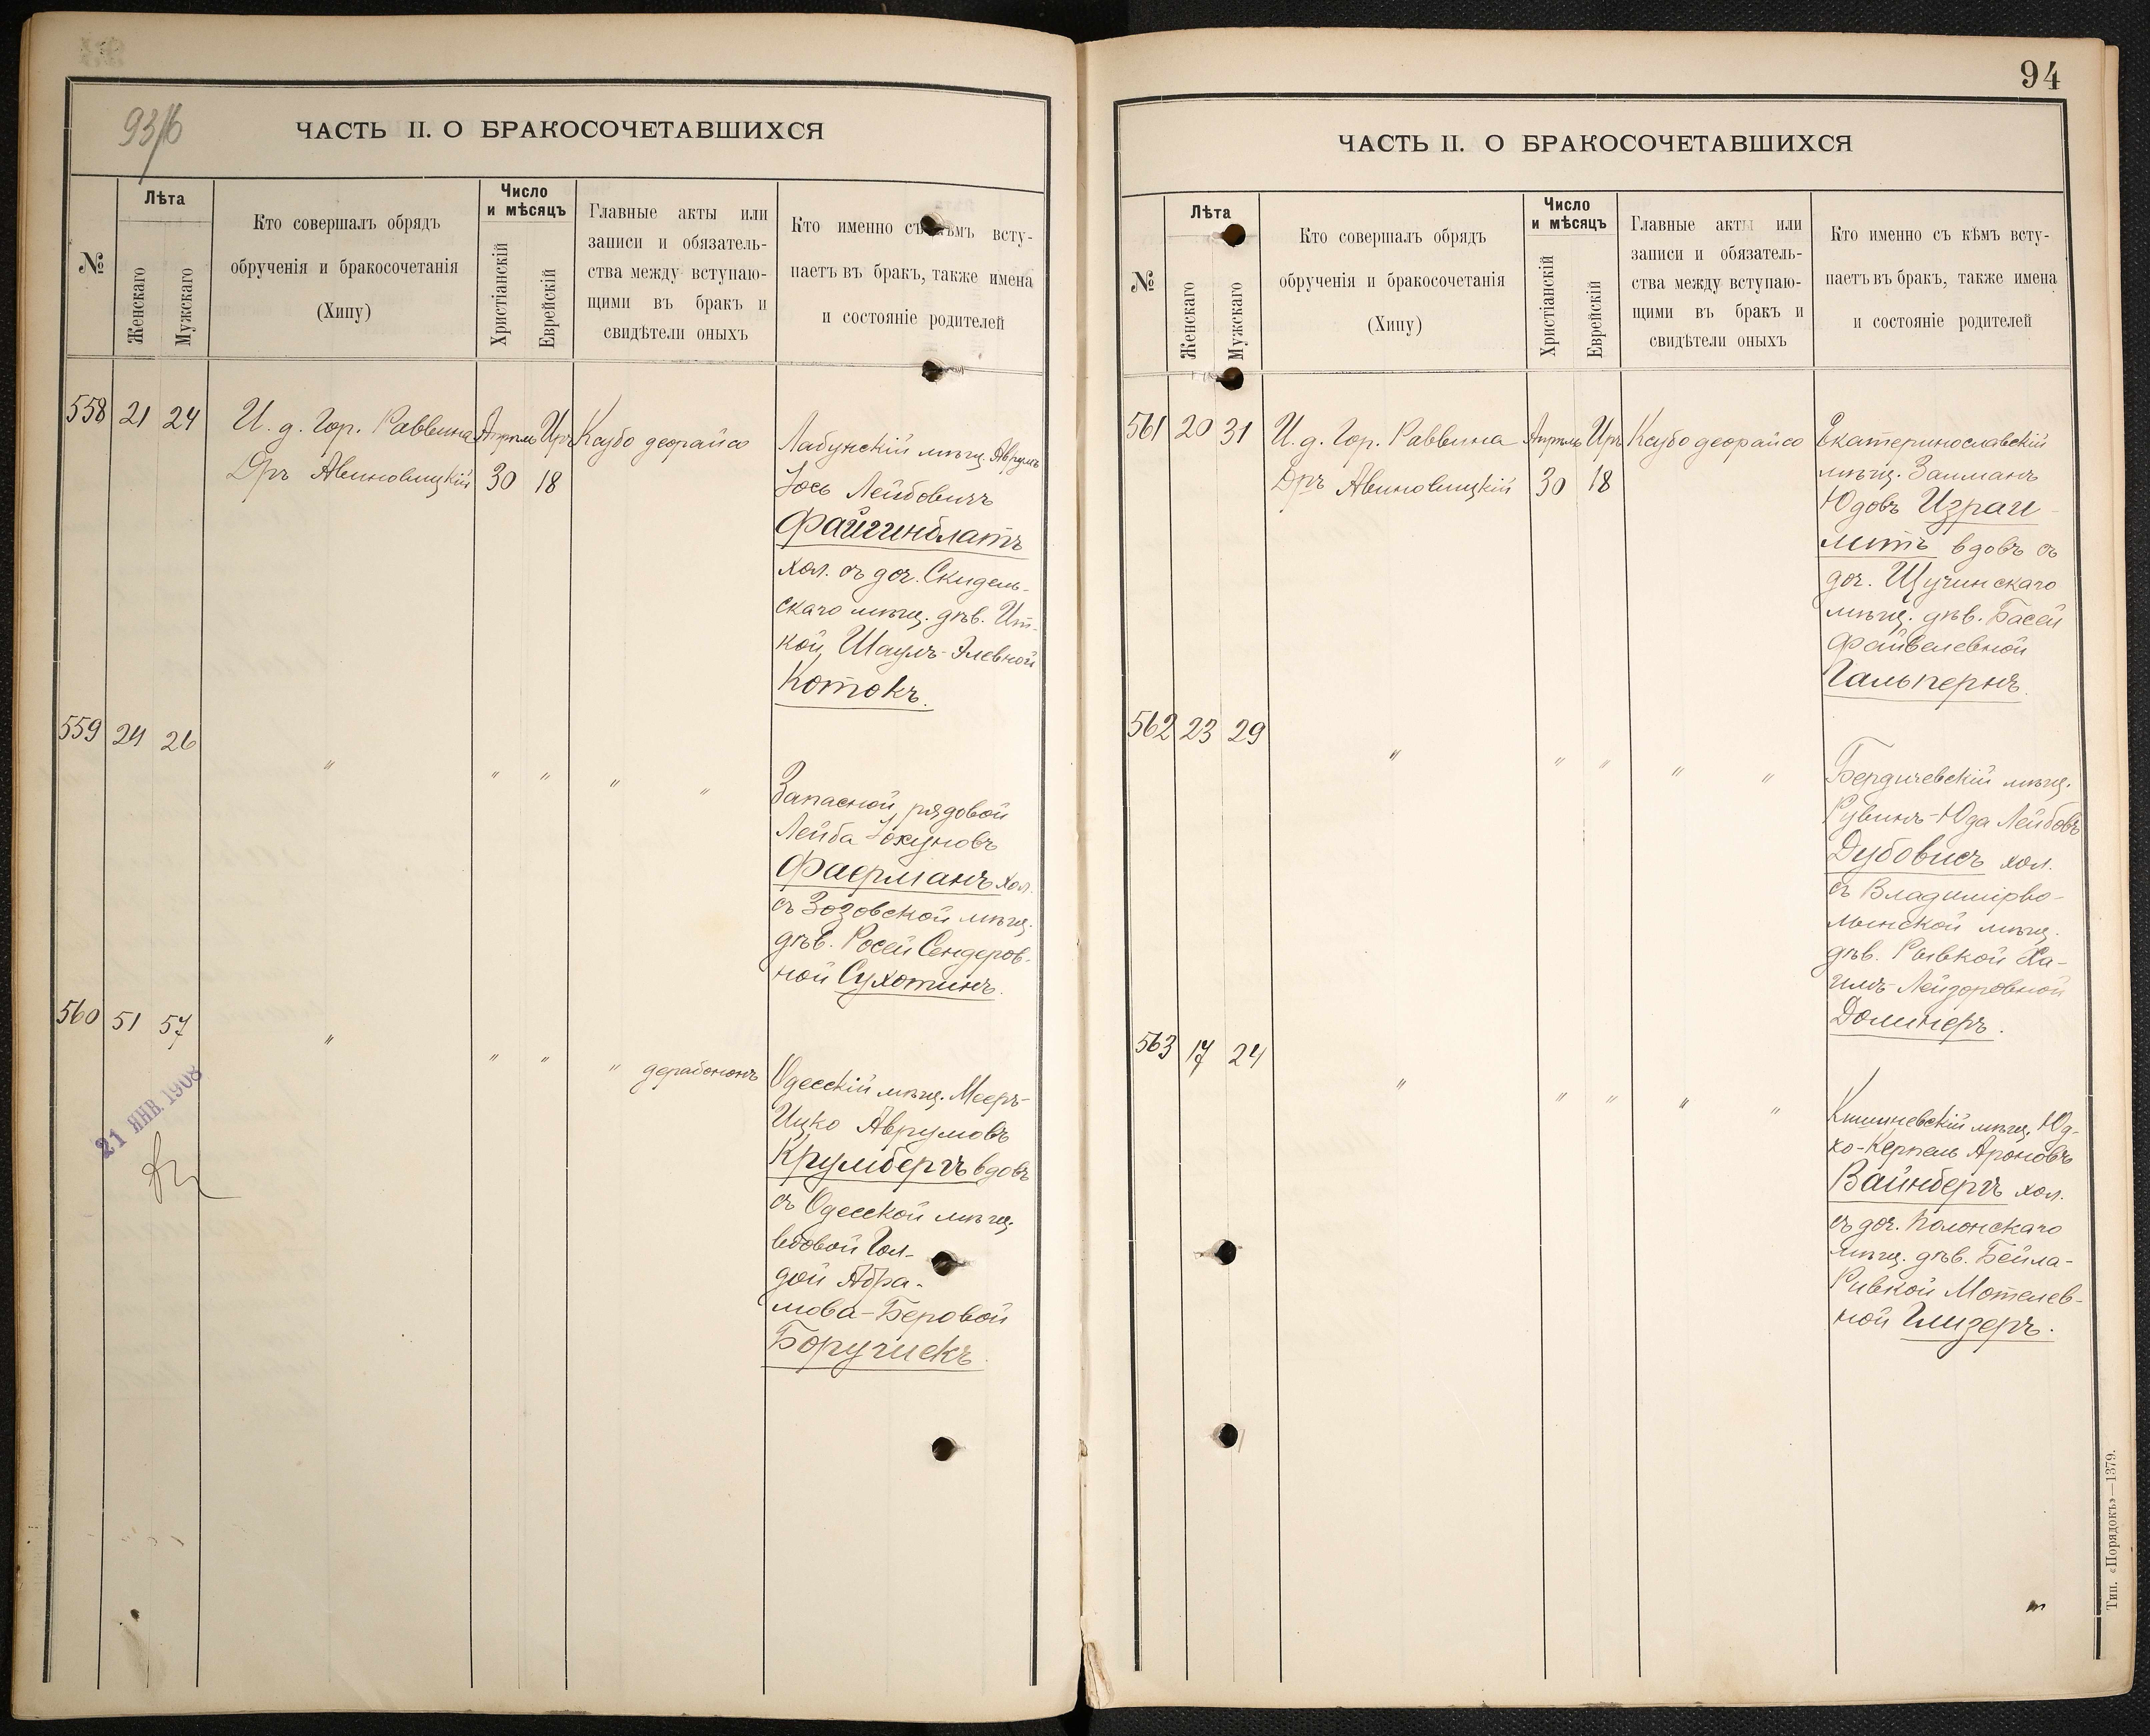 93/б
ЧАСТЬ II. О БРАКОСОЧЕТАВШИХСЯ
№
Лѣта
Женскаго
Мужскаго
Кто совершалъ обрядъ
обрученія и бракосочетанія
(Хипу)
Число
и мѣсяцъ
Христіанскій
Еврейскій
Главные акты или
записи и обязатель-
ства между вступаю-
щими въ бракъ и
свидѣтели оныхъ
Кто именно съ кѣмъ всту-
паетъ въ бракъ, также имена
и состояніе родителей
558 21 24 И. д. Гор. Раввина Апрѣль Иръ Ксубо деорайсо
Дръ Авиновицкій 30 18
Лабунскій мѣщ. Аврумъ
Іось Лейбовичъ
Файгинблатъ
хол. съ доч. Скидель-
скаго мѣщ. дѣв. Ит-
кой Шаулъ-Элевной
Котокъ.
559 24 26 " " " " "
Запасной рядовой
Лейба Іохуновъ
Фаерманъ хол.
съ Зозовской мѣщ.
дѣв. Росей Сендеров-
ной Сухотинъ.
560 51 57 " " " " дерабононъ
Одесскій мѣщ. Мееръ-
Ицко Аврумовъ
Крумбергъ вдовъ
съ Одесской мѣщ.
вдовой Гол-
дой Абра-
мова-Беровой
Боручискъ.
21 ЯНВ. 1908
94
ЧАСТЬ II. О БРАКОСОЧЕТАВШИХСЯ
№
Лѣта
Женскаго
Мужскаго
Кто совершалъ обрядъ
обрученія и бракосочетанія
(Хипу)
Число
и мѣсяцъ
Христіанскій
Еврейскій
Главные акты или
записи и обязатель-
ства между вступаю-
щими въ бракъ и
свидѣтели оныхъ
Кто именно съ кѣмъ всту-
паетъ въ бракъ, также имена
и состояніе родителей
561 20 31 И. д. Гор. Раввина Апрѣль Иръ Ксубо деорайсо
Дръ Авиновицкій 30 18
Екатеринославскій
мѣщ. Залманъ
Юдовъ Израи-
литъ вдовъ съ
доч. Щучинскаго
мѣщ. дѣв. Басей
Файвелевной
Гальпернъ.
562 23 29 " " " " "
Бердичевскій мѣщ.
Рувинъ-Юда Лейбовъ
Дубовисъ хол.
съ Владимірво-
лынской мѣщ.
дѣв. Рывкой Ха-
Лейзоровной
Долинеръ.
563 17 24 " " " " "
Кишиневскій мѣщ. Юд-
ко-Керпель Ароновъ
Вайнбергъ хол.
съ доч. Полонскаго
мѣщ. дѣв. Бейла-
Ривкой Мотелев-
ной Глизеръ.
Тип. «Порядокъ»—1379.